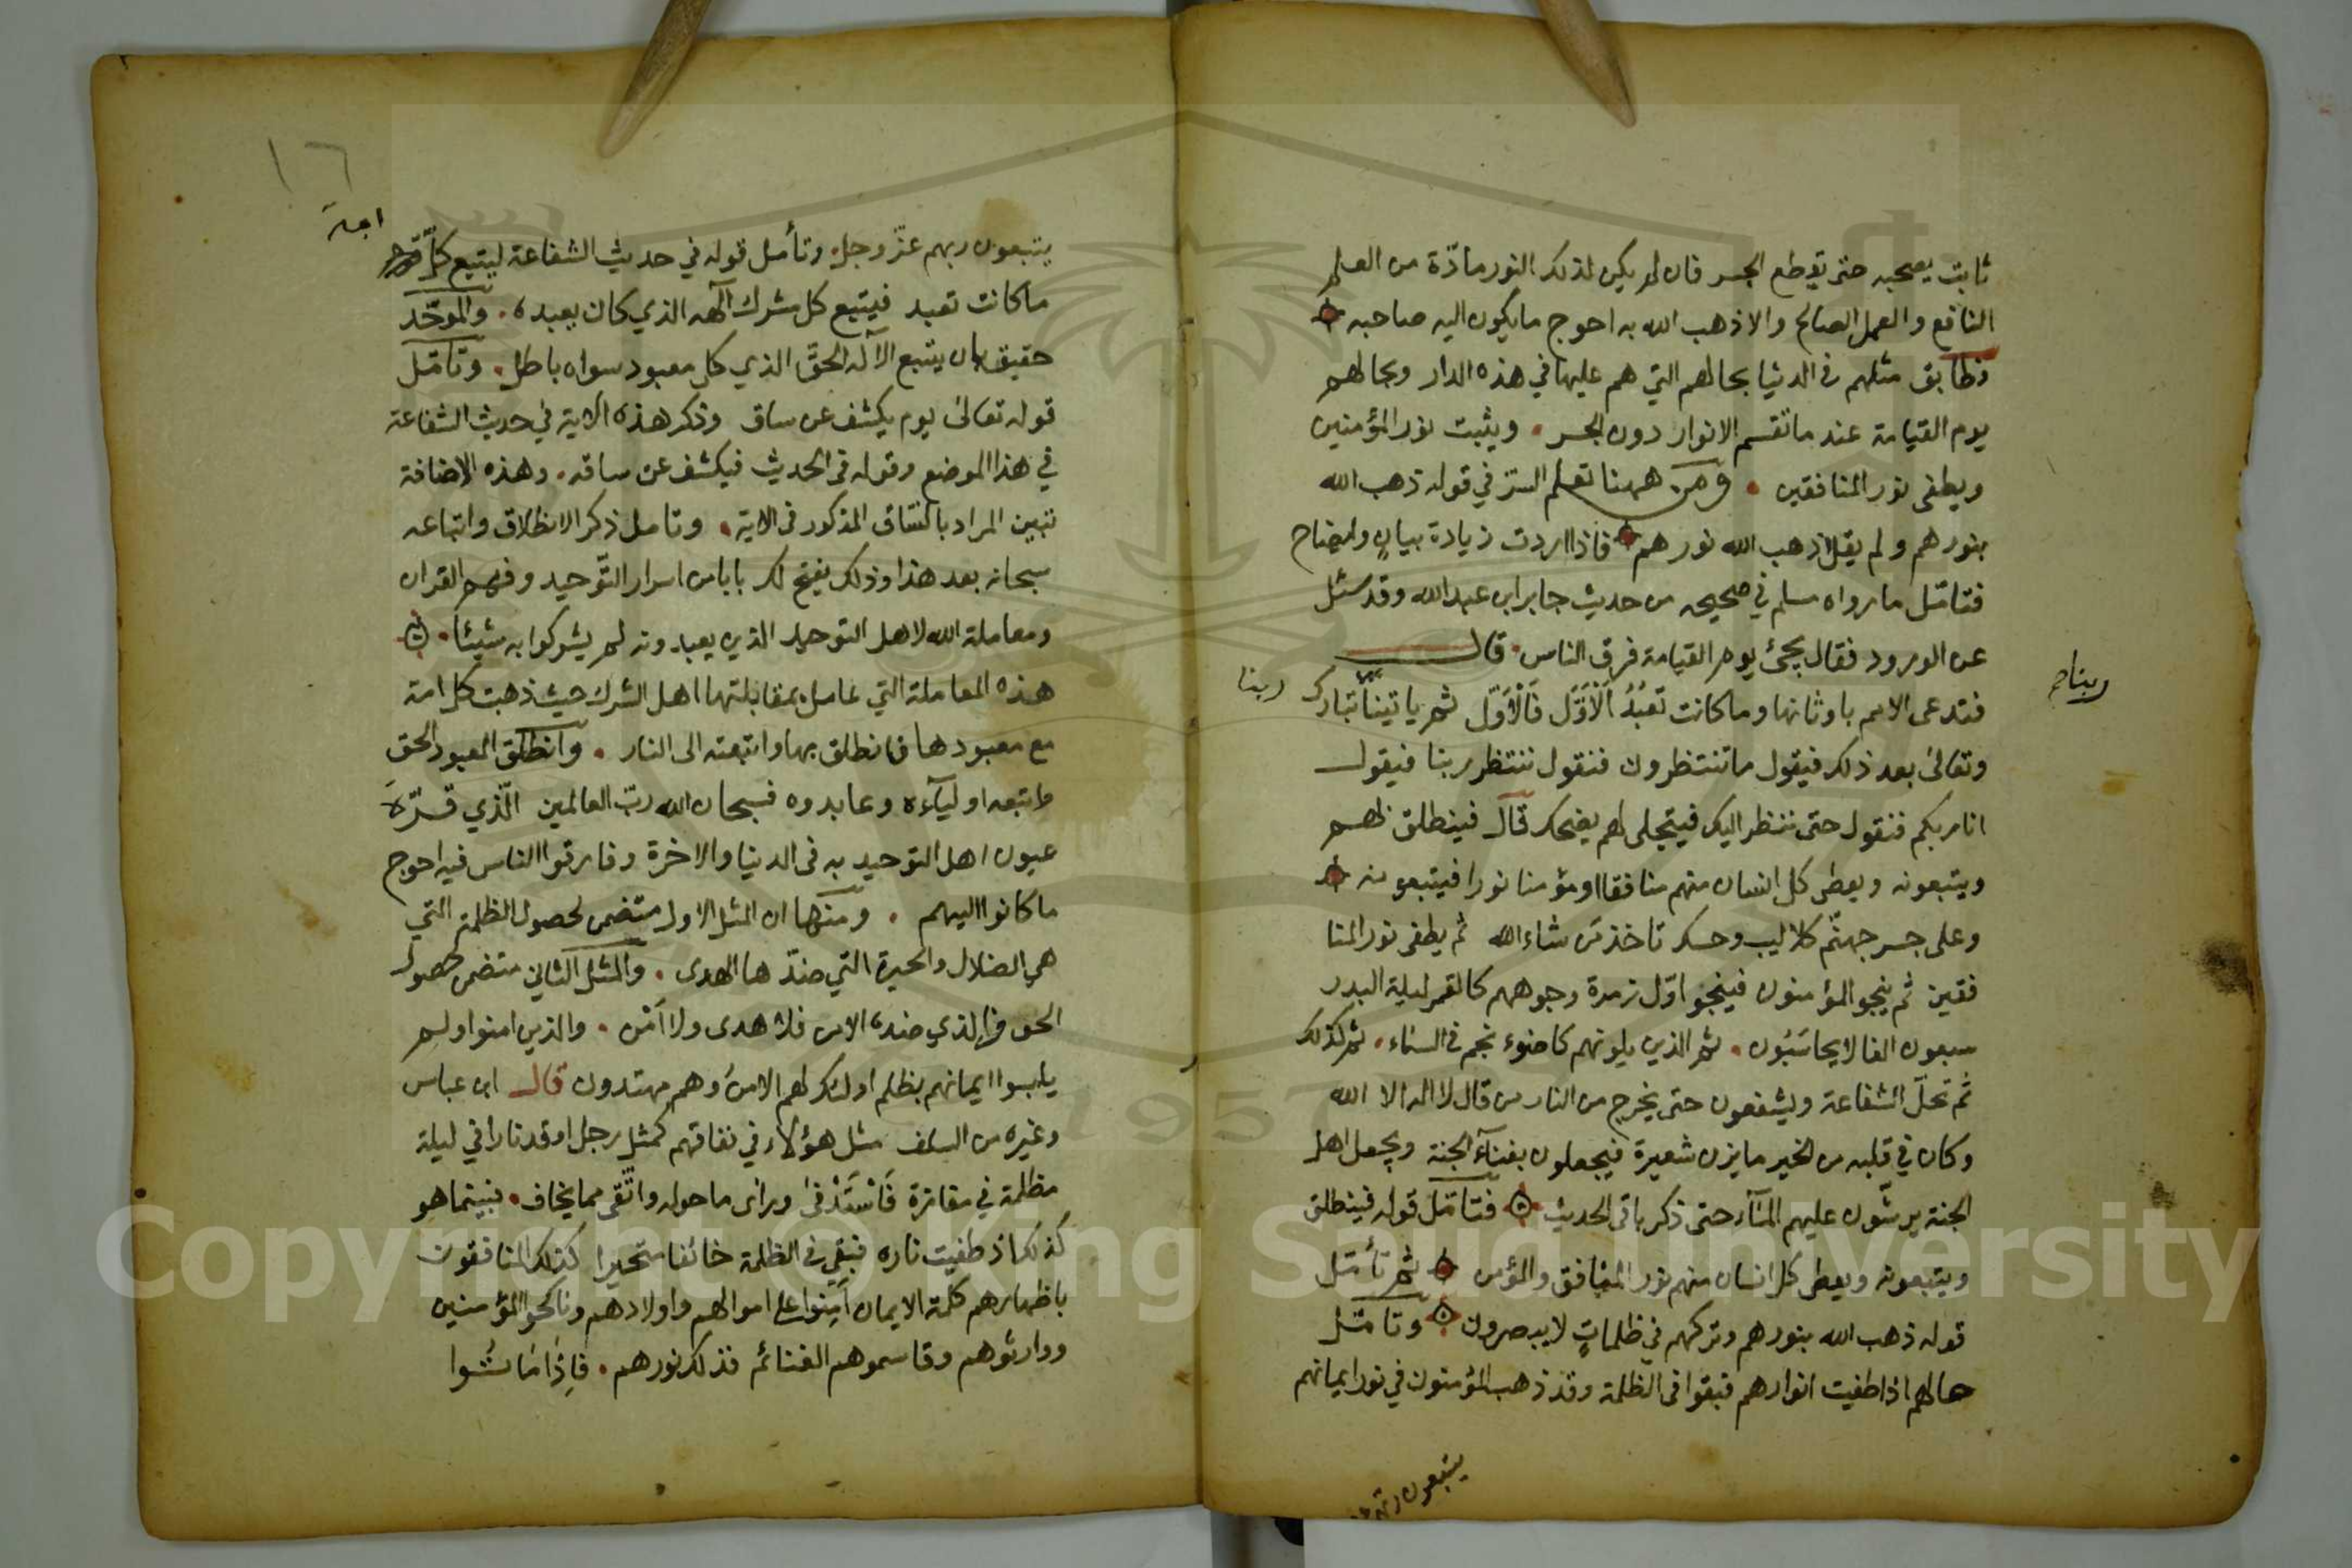 ثابت يصحبه حتى يقطع الجسر فان لم يكن لذلك النور مادّة من العلم
النافع والعمل الصالح والا ذهب الله به احوج مايكون اليه صاحبه
فطابق مثلهم فى الدنيا بحالهم التي هم عليها في هذه الدار وبحالهم
يوم القيامة عند ماتقسم الانوار دون الجسر . ويثبت نور المؤمنين
ويطفى نور المنافقين . ومن ههنا تعلم السرّ في قوله ذهب الله
بنورهم ولم يقل اذهب الله نورهم فاذا اردت زيادة بيانٍ وايضاح
فتامّل مارواه مسلم في صحيحه من حديث جابر ابن عبدالله وقد سئل
عن الورود فقال يجئ يوم القيامة فرق الناس . قال
فتدعى الامم باوثانها وماكانت تعبُدُ اَلْاَوَّل فَالْاَوّل ثم ياتينا تبارك
ربنا
ربنا صح
وتعالى بعد ذلك فيقول ماتنتظرون فنقول ننتظر ربنا فيقول
انا ربكم فنقول حتى ننظر اليك فيتجلى لهم يضحك قال فينطلق بهم
ويتبعونه ويعطى كل انسان منهم منافقا اومؤمنا نورا فيتبعونه
وعلى جسر جهنّم كلاليب وحسك تاخذ مَن شاء الله ثم يطفى نور المنا
فقين ثم ينجو المؤمنون فينجو اوّل زمرة وجوههم كالقمر ليلة البدر
سبعون الفا لايحاسَبُون . ثم الذين يلونهم كاضوء نجم فى السماء . ثم كذلك
ثم تحلّ الشفاعة ويشفعون حتى يخرج من النار من قال لا اله الا الله
وكان في قلبه من الخير مايزن شعيرة فيجعلون بفناء الجنة ويجعل اهل
الجنة يرشّون عليهم الماء حتى ذكر باقى الحديث فتامّل قوله فينطلق
ويتبعونه ويعطى كل انسان منهم نور المنافق والمؤمن ثم تأمّل
قوله ذهب الله بنورهم وتركهم في ظلماتٍ لايبصرون وتامّل
حالهم اذا طفيت انوارهم فبقوا فى الظلمة وقد ذهب المؤمنون في نور ايمانهم
يتبعون ربهم
١٦
يتبعون ربهم عزّ وجل . وتأمل قوله في حديث الشفاعة ليتبع كلّ
امة
ماكانت تعبد فيتبع كل مشرك الهه الذي كان يعبده . والموحّد
حقيق بان يتبع الاله الحقّ الذي كل معبود سواه باطل . وتامّل
قوله تعالىٰ يوم يكشف عن ساق وذكر هذه الاية في حديث الشفاعة
في هذا الموضع وقوله فى الحديث فيكشف عن ساقه . وهذه الاضافة
تبين المراد بالسّاق المذكور فى الاية . وتامل ذكر الانطلاق واتباعه
سبحانه بعد هذا وذلك يفتح لك بابا من اسرار التّوحيد وفهم القران
ومعاملة الله لاهل التوحيد الذين يعبدونه لم يشركوا به شيئا .
هذه المعاملة التي عامل بمقابلتها اهل الشرك حيث ذهبت كل امة
مع معبودها فانطلق بها واتبعته الى النار . وانطلق المعبود الحق
واتبعه اولياءه وعابدوه فسبحان الله ربّ العالمين الّذي قرّت
عيون اهل التوحيد به فى الدنيا والاخرة وفارقوا الناس فيه احوج
ماكانوا اليهم . ومنها ان المثل الاول متضمن لحصول الظلمة التي
هي الضلال والحيرة التي ضدّها الهدى . والمثل الثاني متضمن لحصول
الخوف الذي ضده الامن فلا هدى ولا اَمْن . والذين امنوا ولم
يلبسوا ايمانهم بظلم اولئك لهم الامن وهم مهتدون قال ابن عباس
وغيره من السلف مثل هؤلاء في نفاقهم كمثل رجل اوقد نارا في ليلة
مظلمة في مفازة فَاسْتَدْفىٰ وراى ماحوله واتّقى مما يخاف . فبينما هو
كذلك اذ طفيت ناره فبقي فى الظلمة خائفا متحيرا كذلك المنافقون
باظهارهم كلمة الايمان اَمِنوا على اموالهم واولادهم وناكحوا المؤمنين
ووارثوهم وقاسموهم الغنائم فذلك نورهم . فَاِذَا مَاتُوا
Copyright © King Saud University
1957